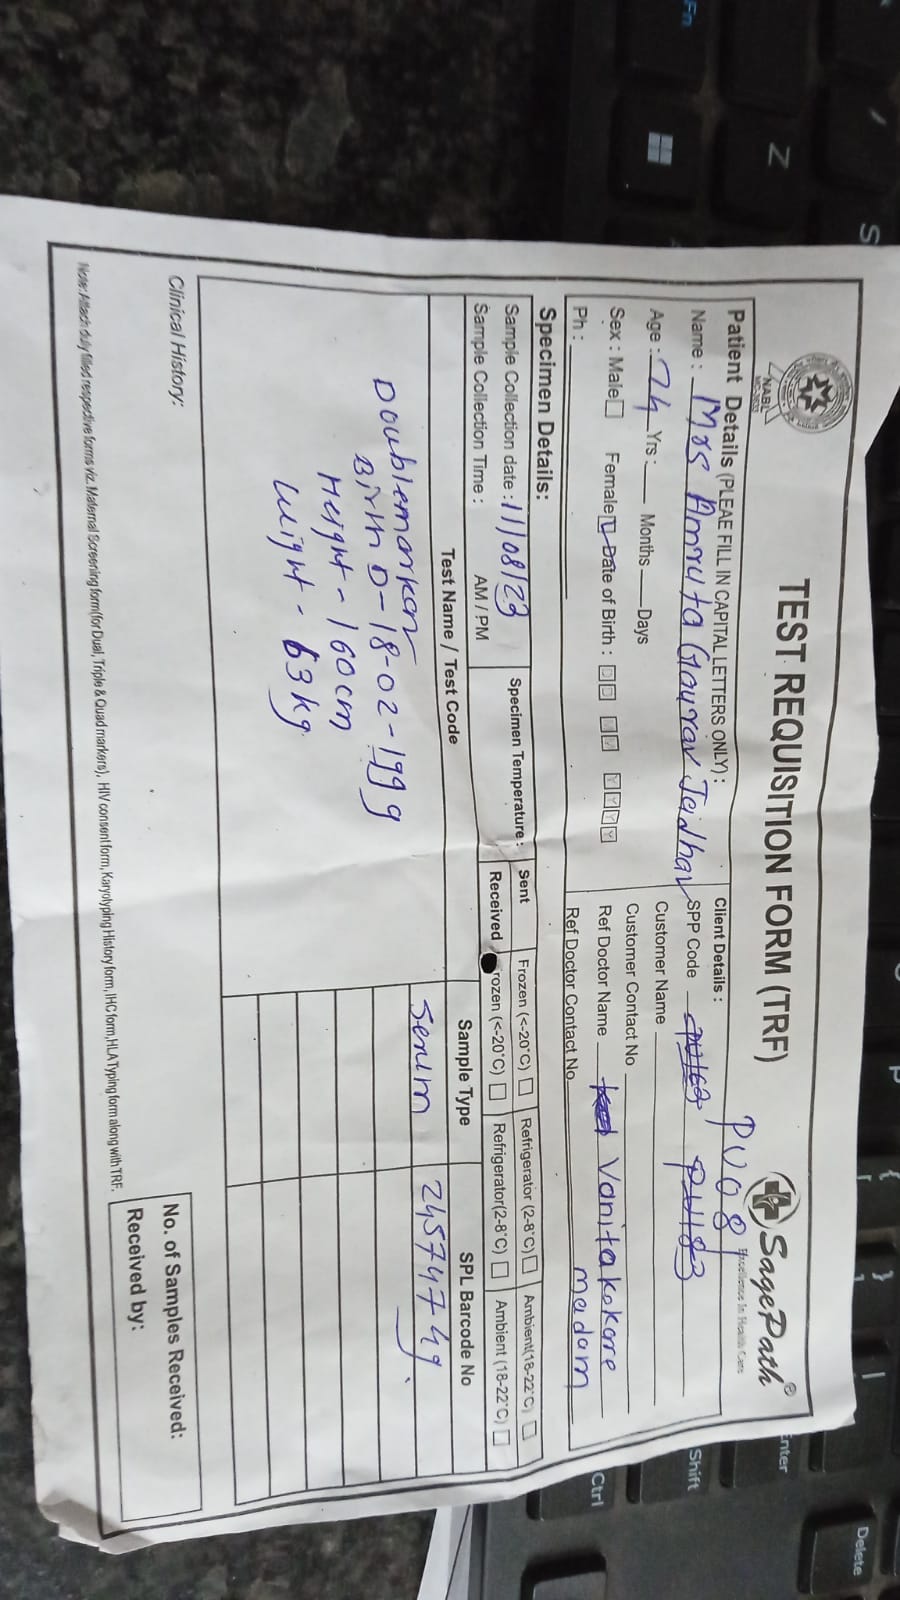 TEST REQUISITION FORM (TRF)
SagePath®
Excellence In Health Care
NABL
PU08
Patient Details (PLEAE FILL IN CAPITAL LETTERS ONLY) :
Name : Mrs Amruta Gaurav Jadhav
Age : 24 Yrs : Months Days
Sex : Male Female Date of Birth : D D M M Y Y Y Y
Ph :
Client Details :
SPP Code
Customer Name
Customer Contact No
Ref Doctor Name Vanita kokare
madam
Ref Doctor Contact No
Specimen Details:
Sample Collection date : 11/08/23
Sample Collection Time : AM / PM
Specimen Temperature :
Sent Frozen (<-20°C) Refrigerator (2-8°C) Ambient(18-22°C)
Received rozen (<-20°C) Refrigerator(2-8°C) Ambient (18-22°C)
Test Name / Test Code Sample Type SPL Barcode No
Doublemarker serum
Birth D-18-02-1999
Height - 160cm
Weight - 63kg
Clinical History:
No. of Samples Received:
Received by:
Note: Attach duly filled respective forms viz. Maternal Screening form(for Dual, Triple & Quad markers), HIV consent form, Karyotyping History form, IHC form, HLA Typing form along with TRF.
Fn
Z
S
P
Enter
Shift
Ctrl
Delete